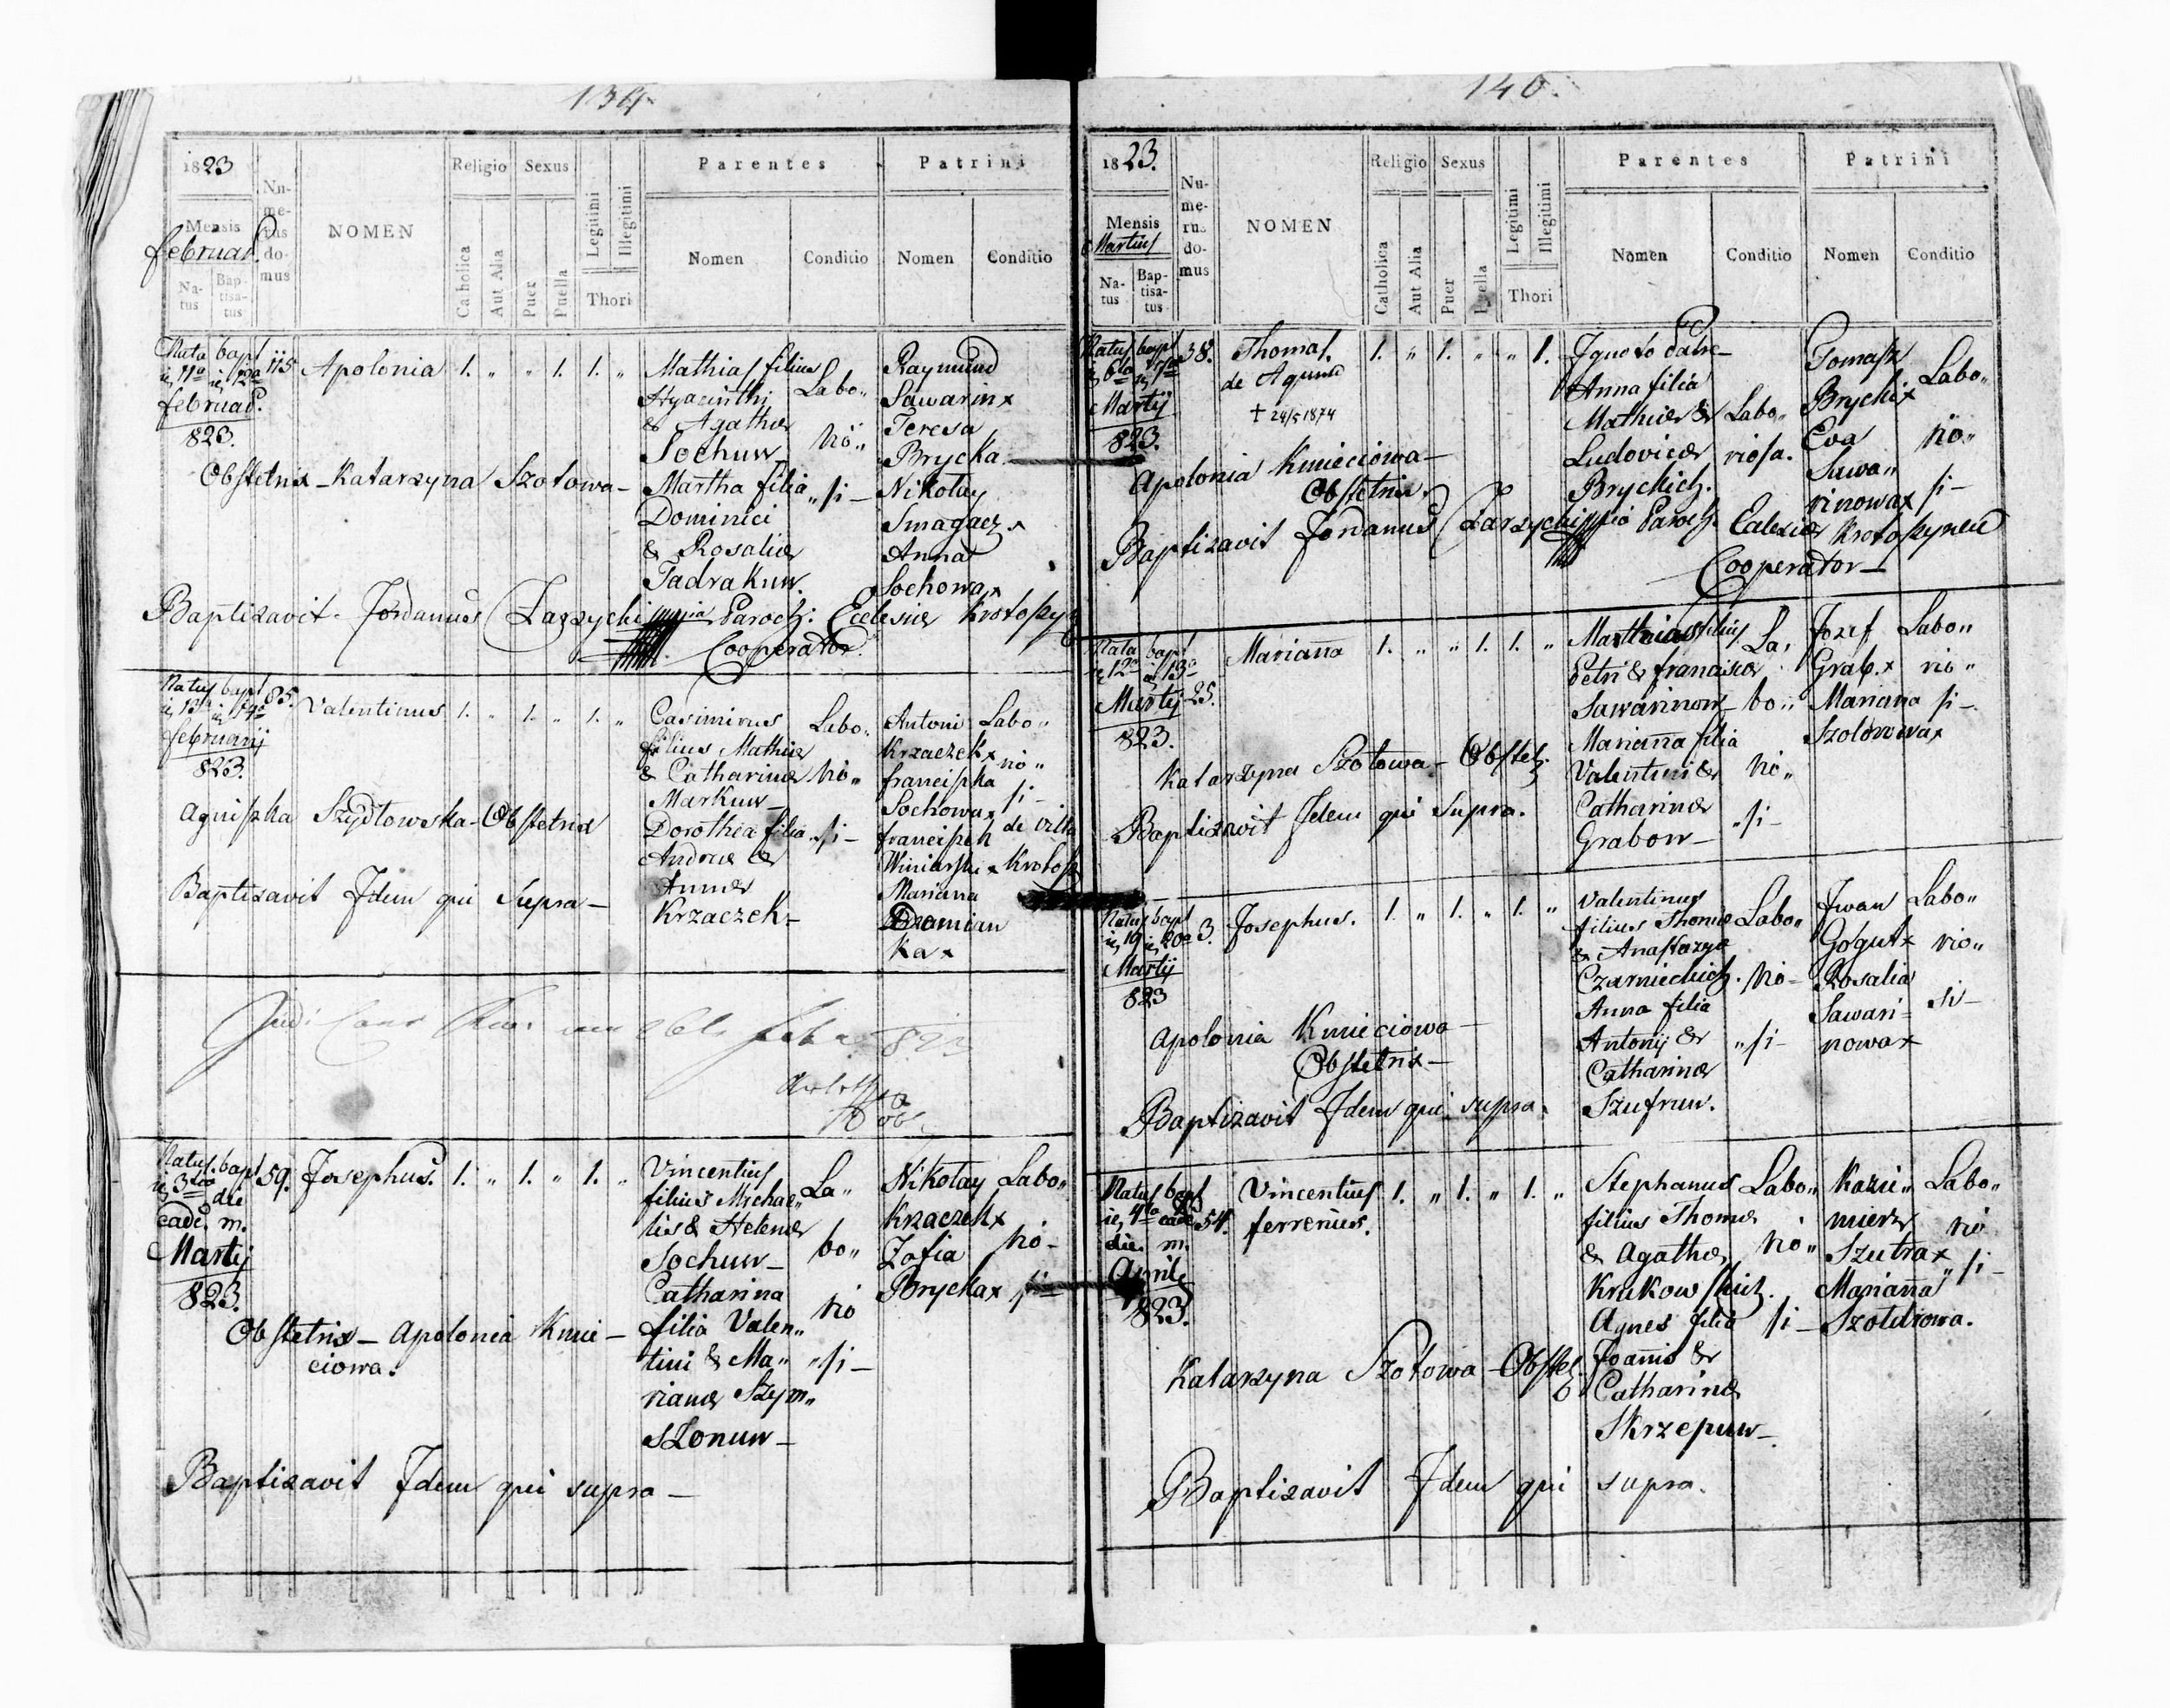 139.
1823
Mensis
februar.
Natus
Baptisatus
Numerus domus
NOMEN
Religio
Catholica
Aut Alia
Sexus
Puer
Puella
Legitimi
Illegitimi
Thori
Parentes
Nomen
Conditio
Patrini
Nomen
Conditio
Nata bapt
ie 11a ie 12a
februar.
823.
115
Apolonia 1. " " 1. 1. "
Mathias filius
Hyacinthi
& Agathæ
Sochuw
Martha filia
Dominici
& Rosaliæ
Tadrakuw.
Labo"
rio"
"si-
Raymund
Sawarin x
Teresa
Brycka
Nikolay
Smagacz x
Anna
Sochowa x
Obstetrix - Katarzyna Szotowa -
Baptizavit Jordanus Zarzycki Paroch: Ecclesiæ Krotoszyn
Cooperator.
Natus bapt
februarij
823.
85.
Valentinus 1. " 1. " 1. "
Casimirus
filius Mathiæ
& Catharinæ
Markuw
Dorothea filia
Andreæ &
Annæ
Krzaczek -
Labo"
rio"
"si-
Antoni
Krzaczek x
franciszka
Sochowa x
franciszek
Winiarski x
Mariana
Domian
ka x
Labo"
rio"
si-
de villa
Krotosz
Agniszka Szydłowska - Obstetrix
Baptizavit Idem qui Supra -
823
Natus. bapt
ie 3tia die
eade. m.
Martij
823.
59.
Josephus. 1. " 1. " 1. "
Vincentius
filius Michae"
lis & Helenæ
Sochuw -
Catharina
filia Valen"
tini & Ma"
rianæ Szym"
szonuw -
La"
bo"
rio
"si-
Nikolay
Krzaczek x
Zofia
Brycka x
Labo"
rio-
si-
Obstetrix - Apolonia Kmie -
ciowa.
Baptizavit Idem qui supra -
140.
1823.
Mensis
Martius
Natus
Baptisatus
Numerus domus
NOMEN
Religio
Catholica
Aut Alia
Sexus
Puer
Puella
Legitimi
Illegitimi
Thori
Parentes
Nomen
Conditio
Patrini
Nomen
Conditio
Natus bapt
ie 6ta ie 7ma
Martij
823.
38.
Thomas.
de Aquino
† 24/5 1874
1. " 1. " " 1.
Ignoto Patre
Anna filia
Mathiæ &
Ludovicæ
Bryckich.
Labo"
riosa.
Tomasz
Brycki x
Eva
Sawa"
rinowa x
Labo"
rio"
si-
Apolonia Kmieciowa -
Obstetrix.
Baptizavit Jordanus Zarzycki Paroch. Ecclesiæ Krotoszynen
Cooperator -
Nata bapt
ie 12a ie 13a
Martij
823.
25.
Marianna 1. " " 1. 1. "
Matthias filius
Petri & franciscæ
Sawarinow -
Marianna filia
Valentini &
Catharinæ
Grabow -
La"
bo"
rio"
"si-
Jozef
Grab. x
Mariana
Szoldrowa x
Labo"
rio"
si-
Katarzyna Szotowa - Obstet.
Baptizavit Idem qui Supra.
Natus bapt
ie 19 ie 20a
Martij
823
3.
Josephus. 1. " 1. " 1. "
Valentinus
filius Thomæ
& Anastazyæ
Czarnieckich.
Anna filia
Antonij &
Catharinæ
Szufruw.
Labo"
rio-
"si-
Iwan
Gogut x
Rosalia
Sawari-
nowa x
Labo"
rio"
si-
Apolonia Kmieciowa -
Obstetrix -
Baptizavit Idem qui supra.
Natus bapt
ie 4ta eade
die m.
Aprilis
823.
54.
Vincentius
ferrerius.
1. " 1. " 1. "
Stephanus
filius Thomæ
& Agathæ
Krukowskich.
Agnes filia
Joannis &
Catharinæ
Skrzepuw -
Labo"
rio"
si-
Kazi"
mierz
Szutra x
Marianna
Szoldrowa.
Labo"
rio
"si-
Katarzyna Szotowa - Obstet.
Baptizavit Idem qui supra.